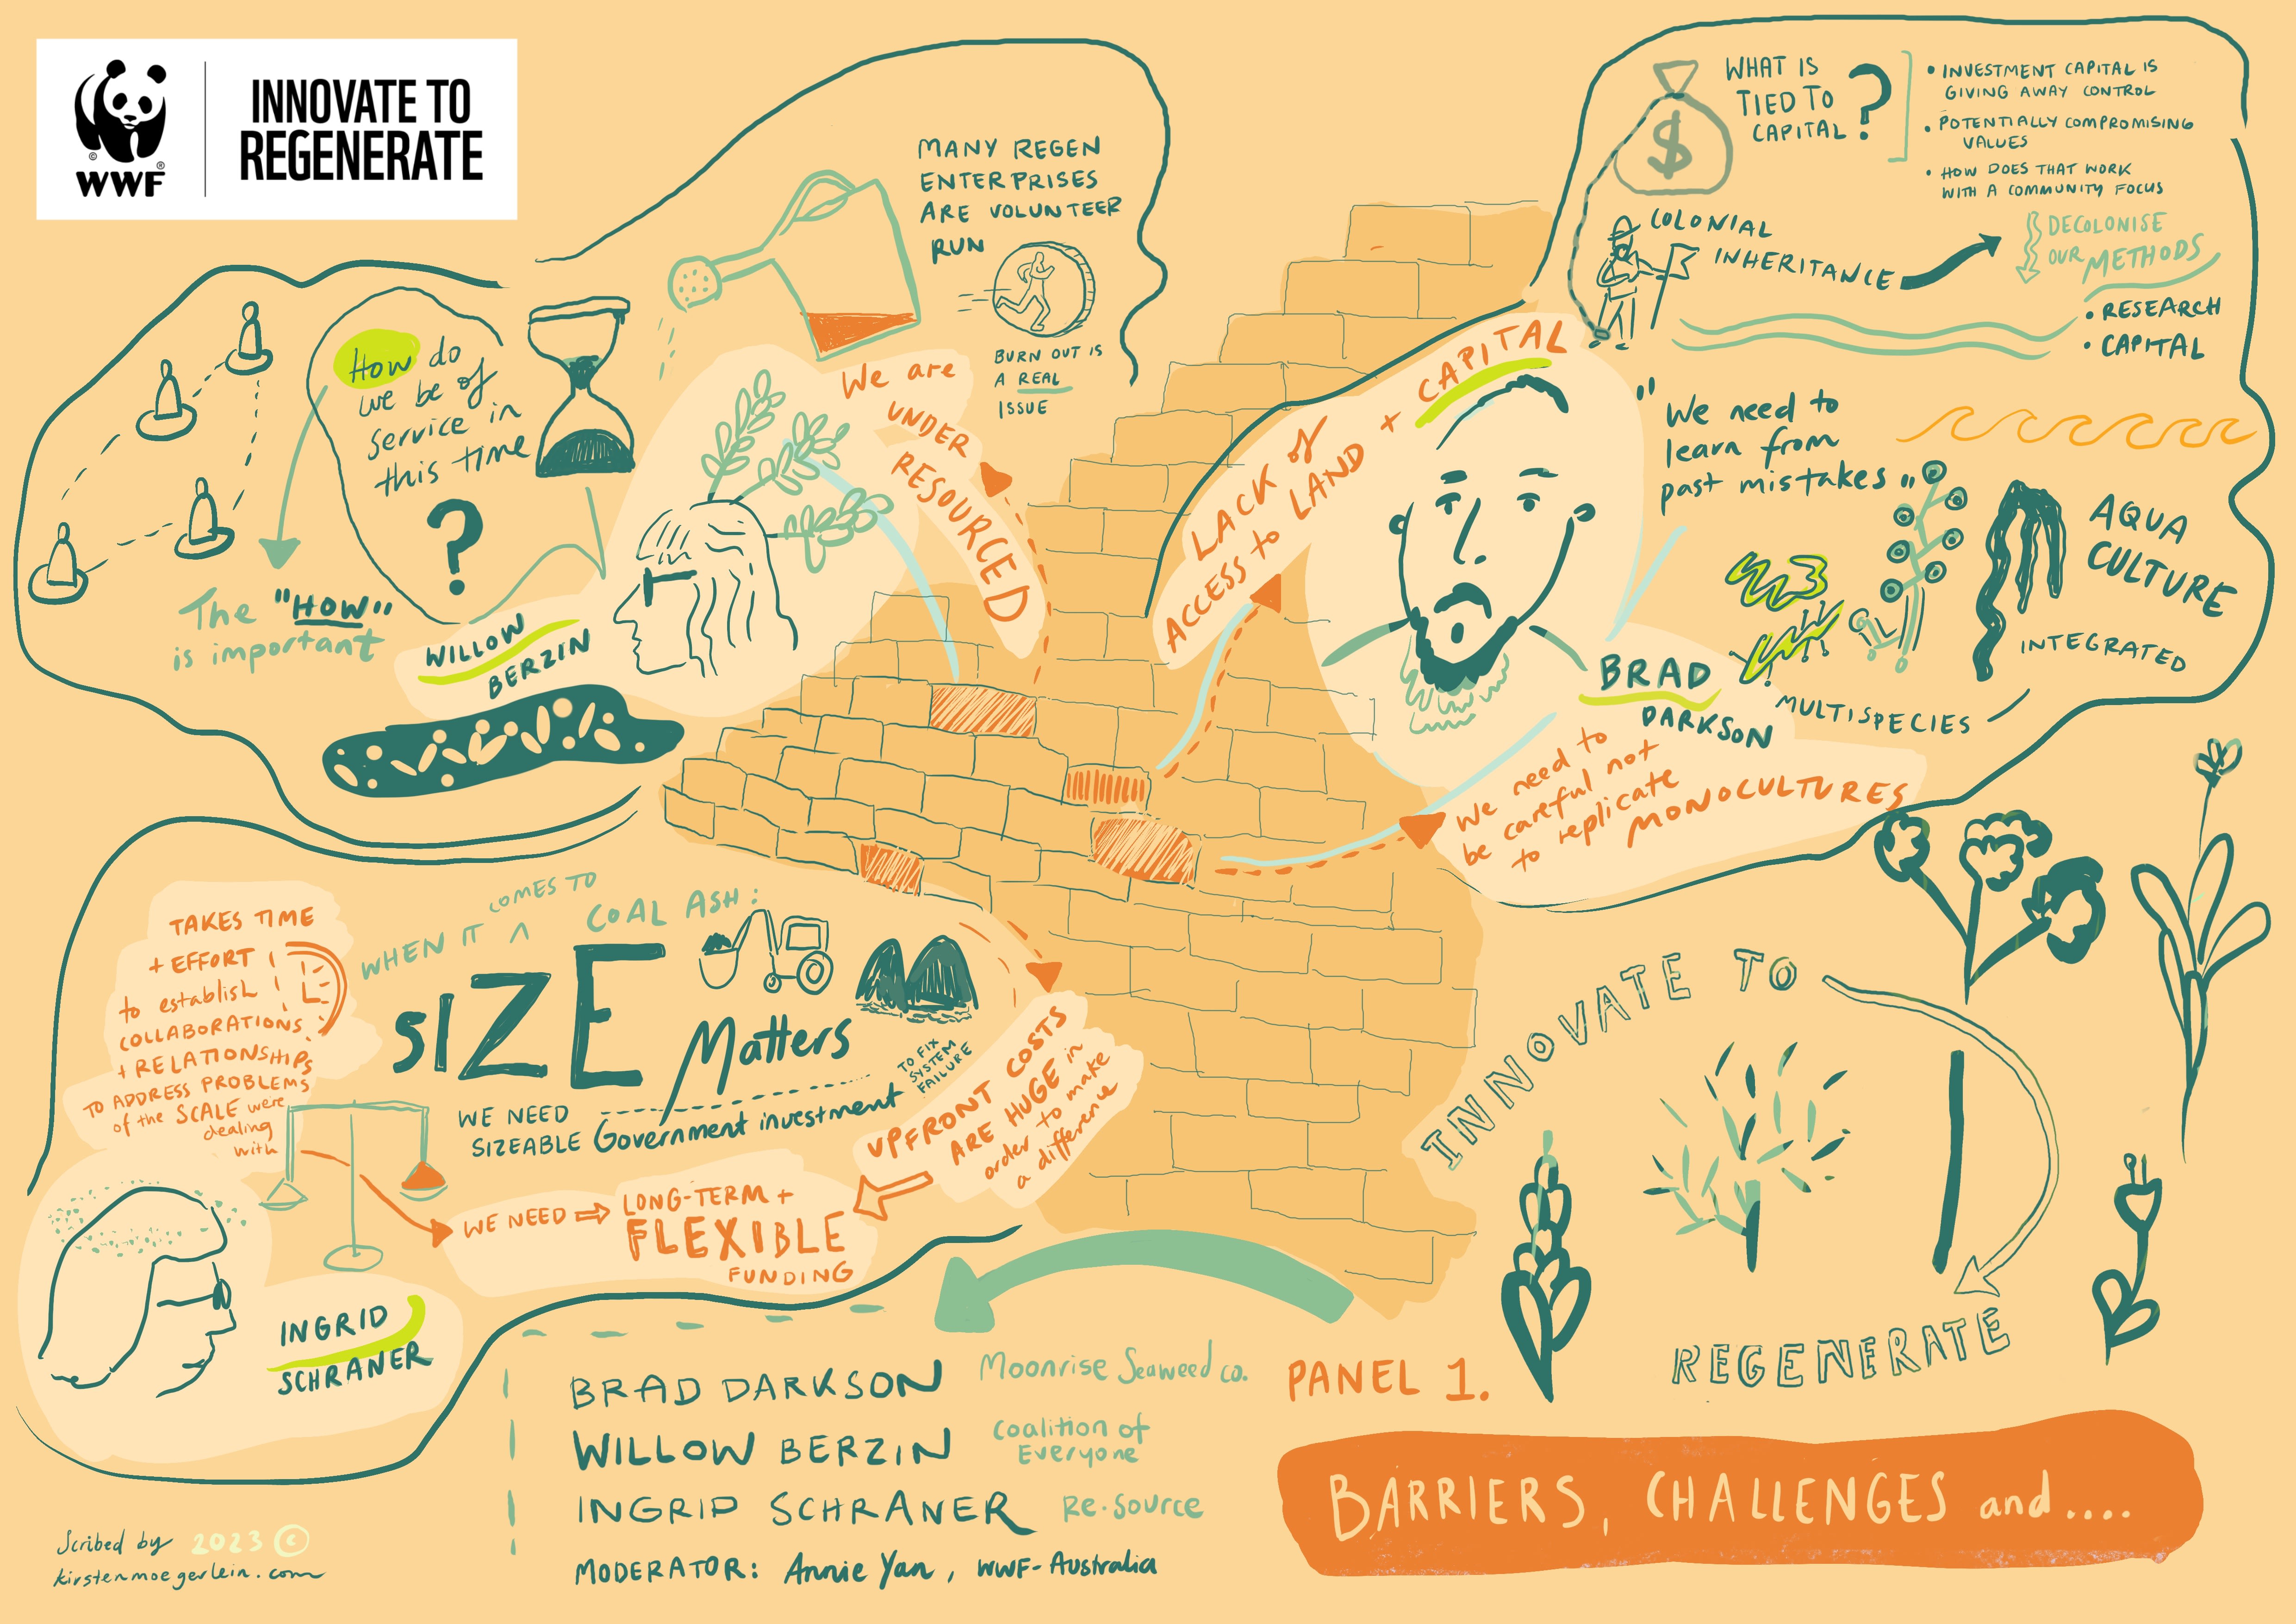 WWF
INNOVATE TO
REGENERATE
MANY REGEN
ENTERPRISES
ARE VOLUNTEER
RUN
BURN OUT IS
A REAL
ISSUE
We are
UNDER
RESOURCED
How do
we be of
service in
this time
?
The "HOW"
is important
WILLOW
BERZIN
$
WHAT IS
TIED TO
CAPITAL
?
• INVESTMENT CAPITAL IS
GIVING AWAY CONTROL
• POTENTIALLY COMPROMISING
VALUES
• HOW DOES THAT WORK
WITH A COMMUNITY FOCUS
COLONIAL
INHERITANCE
DECOLONISE
OUR METHODS
• RESEARCH
• CAPITAL
LACK of
ACCESS to LAND + CAPITAL
"We need to
learn from
past mistakes"
AQUA
CULTURE
INTEGRATED
MULTISPECIES
BRAD
DARKSON
We need to
be careful not
to replicate
MONOCULTURES
TAKES TIME
+ EFFORT
to establish
COLLABORATIONS
+ RELATIONSHIPS
TO ADDRESS PROBLEMS
of the SCALE were
dealing
with
WHEN IT ^ COMES TO COAL ASH:
SIZE
Matters
WE NEED
SIZEABLE Government investment
TO FIX
SYSTEM
FAILURE
UPFRONT COSTS
ARE HUGE in
order to make
a difference
WE NEED ⇒ LONG-TERM +
FLEXIBLE
FUNDING
INGRID
SCHRANER
INNOVATE TO
REGENERATE
BRAD DARKSON Moonrise Seaweed co.
WILLOW BERZIN Coalition of
Everyone
INGRID SCHRANER Re.Source
MODERATOR: Annie Yan, WWF-Australia
PANEL 1.
BARRIERS, CHALLENGES and....
Scribed by 2023 ©
kirstenmoegerlein.com